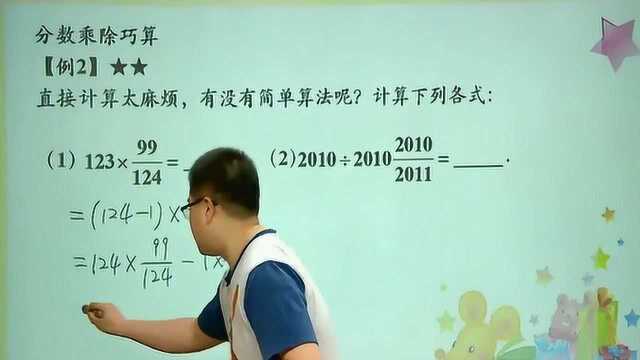 分数乘除巧算
【例2】★★
直接计算太麻烦，有没有简单算法呢？计算下列各式：
(1) 123×99/124=
(2) 2010÷2010 2010/2011=____.
=(124-1)×
=124×99/124-1×